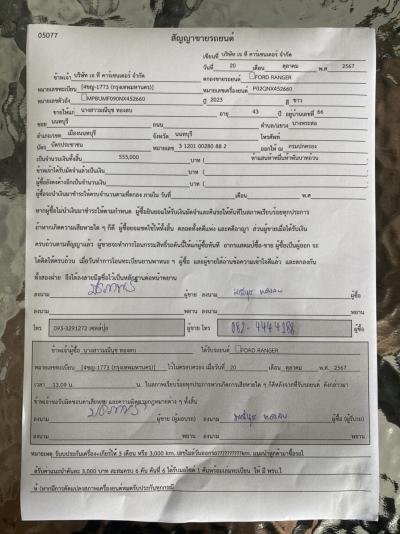 05077
สัญญาขายรถยนต์
เขียนที่ บริษัท เจ ที คาร์เซนเตอร์ จำกัด
วันที่ 20 เดือน ตุลาคม พ.ศ 2567
ข้าพเจ้า บริษัท เจ ที คาร์เซนเตอร์ จำกัด ตกลงขายรถยนต์ FORD RANGER
หมายเลขทะเบียน [4ขญ-1773 (กรุงเทพมหานคร)] หมายเลขเครื่องยนต์ P02QNX452660
หมายเลขตัวถัง MPBUMF090NX452660 ปี 2023 สี ขาว
ขายให้แก่ นางสาวมณีนุช ทองตบ อายุ 43 ปี อยู่บ้านเลขที่ 66
ซอย นนทบุรี ถนน ตำบล/แขวง บางกระสอ
อำเภอ/เขต เมืองนนทบุรี จังหวัด นนทบุรี โทรศัพท์
บัตร บัตรประชาชน หมายเลข 3 1201 00280 88 2 ออกให้ ณ กรมปกครอง
เป็นจำนวนเงินทั้งสิ้น 555,000 บาท ( ห้าแสนห้าหมื่นห้าพันบาทถ้วน
ข้าพเจ้าได้รับมัดจำแล้วเป็นเงิน บาท (
ผู้ซื้อยังคงค้างอีกเป็นจำนวนเงิน บาท (
ผู้ซื้อจะนำเงินมาชำระให้ครบจำนวนตามที่ตกลง ภายใน วันที่ เดือน พ.ศ
หากผู้ซื้อไม่นำเงินมาชำระตามกำหนด ผู้ซื้อยินยอมให้ริบเงินมัดจำและคืนรถให้ทันทีในสภาพเรียบร้อยทุกประการ
ถ้าหากเกิดความเสียหายใด ๆ ก็ดี ผู้ซื้อยอมชดใช้ให้ทั้งสิ้น ตลอดทั้งคดีแพ่ง และคดีอาญา ส่วนผู้ขายเมื่อได้รับเงิน
ครบถ้วนตามสัญญาแล้ว ผู้ขายจะทำการโอนกรรมสิทธิ์รถคันนี้ให้แก่ผู้ซื้อทันที
ได้คิดให้ครบถ้วน เมื่อวันทำการโอนทะเบียนยานพาหนะ ๆ ผู้ซื้อ และผู้ขายได้อ่านข้อความเข้าใจดีแล้ว และตกลงกัน
ทั้งสองฝ่าย จึงได้ลงลายมือชื่อไว้เป็นหลักฐานต่อหน้าพยาน
ลงนาม ผู้ขาย ลงนาม มณีนุช ทองตบ ผู้ซื้อ
ลงนาม พยาน ลงนาม พยาน
โทร 093-3291272 ผู้ขาย โทร 082-4444188 ผู้ซื้อ
ข้าพเจ้าผู้ซื้อ นางสาวมณีนุช ทองตบ ได้รับรถยนต์ FORD RANGER
หมายเลขทะเบียน [4ขญ-1773 (กรุงเทพมหานคร)] ไว้ในครอบครอง เมื่อวันที่ 20 เดือน ตุลาคม พ.ศ 2567
เวลา 13.09 น. น. ในสภาพเรียบร้อยทุกประการหากเกิดการเสียหายใด ๆ ก็ดีหลังจากที่รับรถยนต์ ดังกล่าวมา
ข้าพเจ้าขอรับผิดชอบความเสียหาย และความผิดตามกฎหมายต่าง ๆ ทั้งสิ้น
ลงนาม ผู้ขาย (ผู้มอบรถ) ลงนาม มณีนุช ทองตบ ผู้ซื้อ (ผู้รับรถ)
ลงนาม พยาน ลงนาม พยาน
หมายเหตุ รับประกันเครื่อง+เกียร์ให้ 3 เดือน หรือ 3,000 km.
ได้รับค่าแนะนำคันละ 3,000 บาท สะสมครบ 6 คัน คันที่ 6 ได้รับมอไซค์ 1 คันพร้อมเล่มทะเบียน